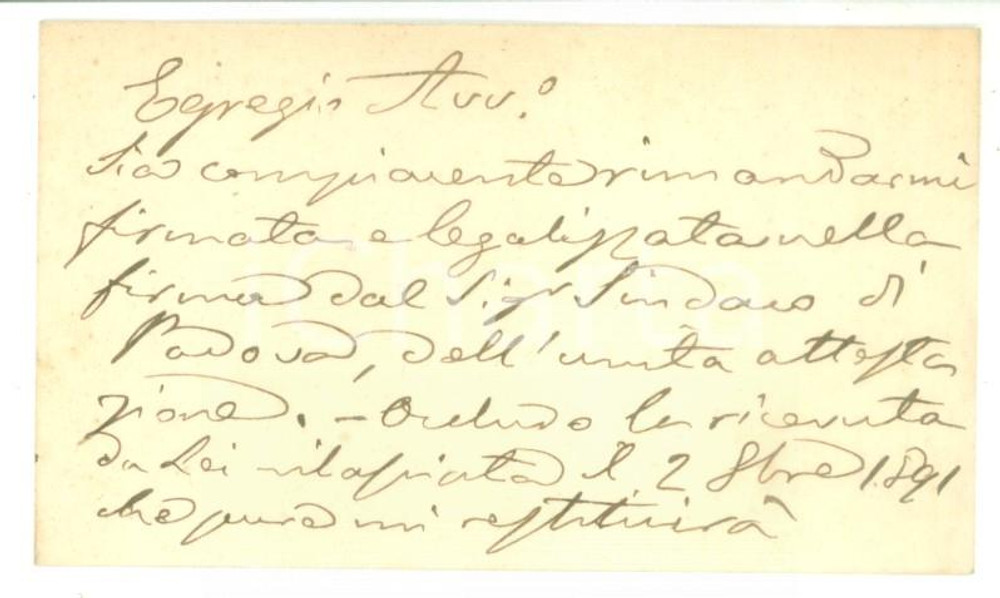 Egregio Avv.o
Sia compiacente rimandarmi
firmata e legalizzata nella
firma dal Sigr Sindaco di
Padova, dell'unita attesta
zione. - Accludo la ricevuta
da Lei rilasciata il 2 8bre 1891
che pure mi restituirà